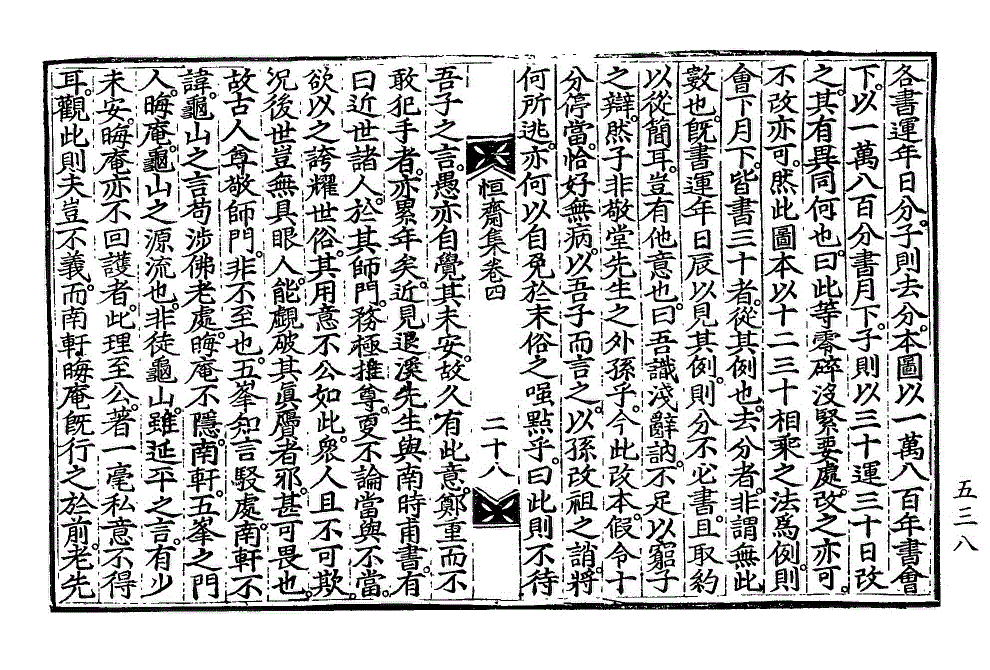 各書運年日分。子則去分。本圖以一萬八百年書會
下。以一萬八百分書月下。子則以三十運三十日改
之。其有異同何也。曰此等零碎沒緊要處。改之亦可。
不改亦可。然此圖本以十二三十相乘之法爲例。則
會下月下。皆書三十者。從其例也。去分者。非謂無此
數也。旣書運年日辰以見其例。則分不必書。且取約
以從簡耳。豈有他意也。曰吾識淺辭訥。不足以窮子
之辯。然子非敬堂先生之外孫乎。今此改本。假令十
分停當。恰好無病。以吾子而言之。以孫改祖之誚。將
何所逃。亦何以自免於末俗之嗤點乎。曰此則不待
恒齋集卷四
二十八
吾子之言。愚亦自覺其未安。故久有此意。鄭重而不
敢犯手者。亦累年矣。近見退溪先生與南時甫書。有
曰近世諸人。於其師門。務極推尊。更不論當與不當。
欲以之誇耀世俗。其用意不公如此。衆人且不可欺。
況後世豈無具眼人。能覷破其眞贗者邪。甚可畏也。
故古人尊敬師門。非不至也。五峯知言駁處。南軒不
諱。龜山之言苟涉佛老處。晦庵不隱。南軒。五峯之門
人。晦庵。龜山之源流也。非徒龜山。雖延平之言。有少
未安。晦庵亦不回護者。此理至公。著一毫私意不得
耳。觀此則夫豈不義。而南軒晦庵旣行之於前。老先
五三八